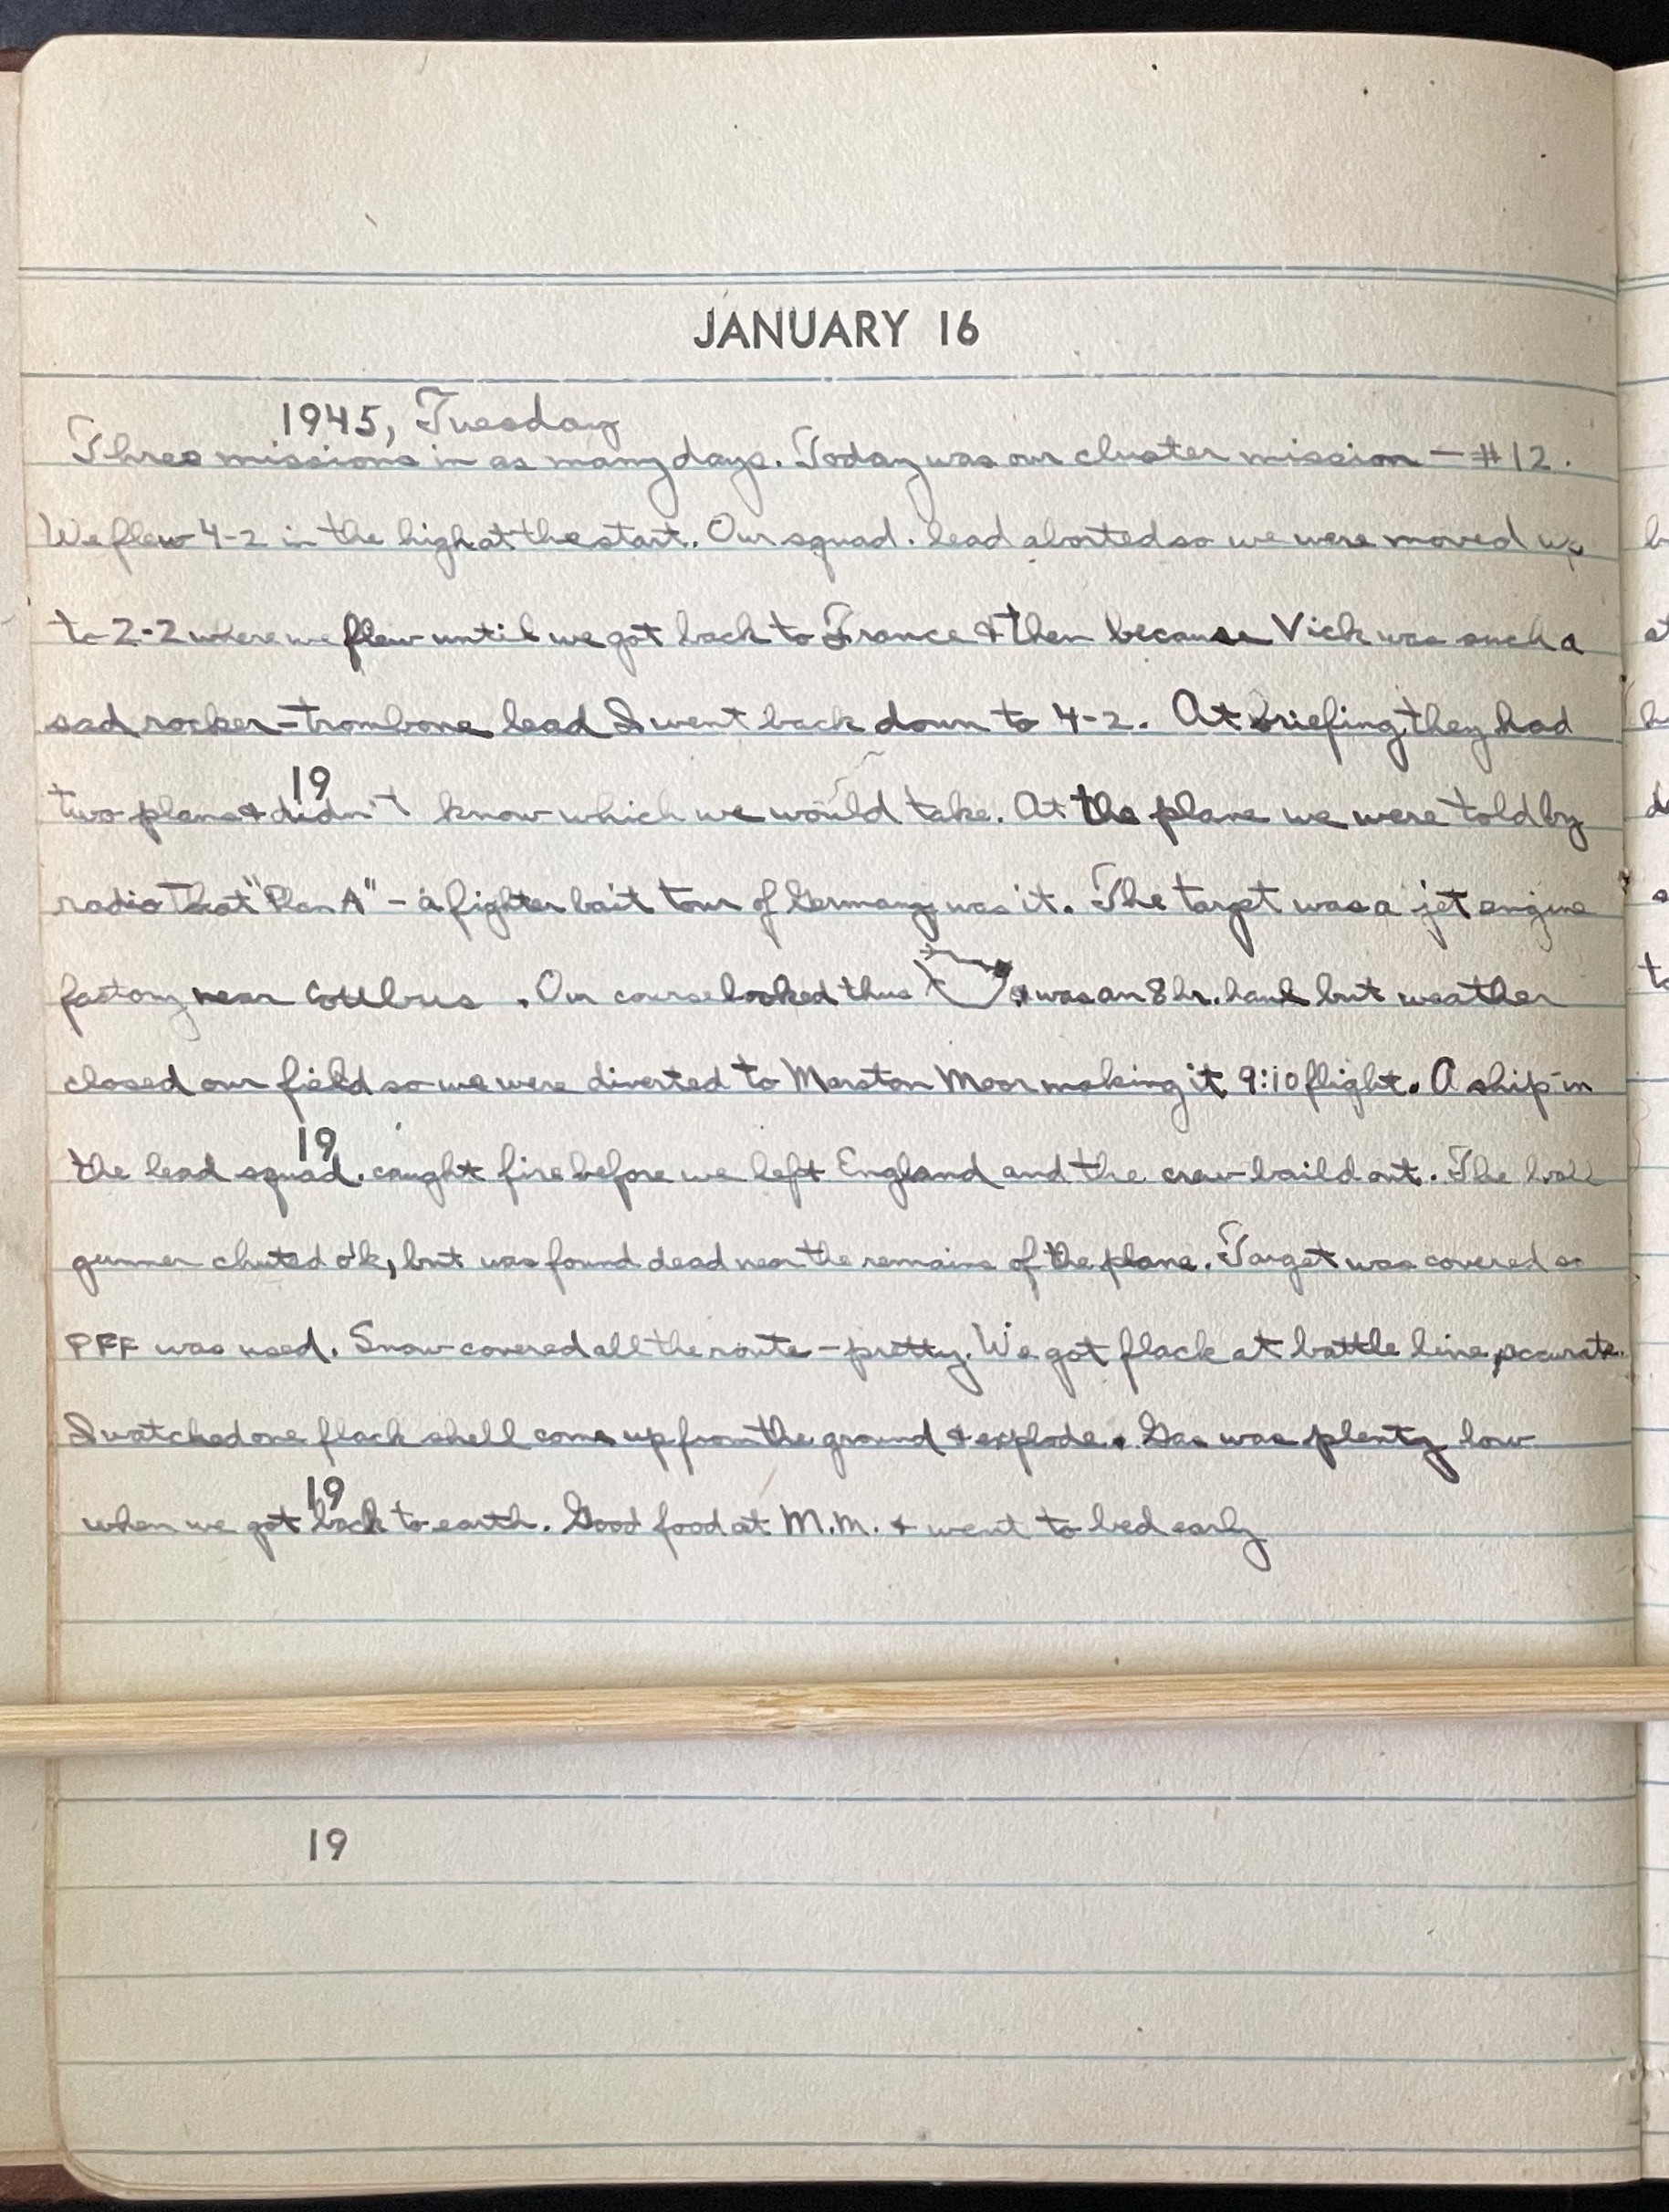 JANUARY 16
1945, Tuesday
Three missions in as many days. Today was our cluster mission — #12.
We flew 4-2 in the high at the start. Our squad. lead aborted so we were moved up
to 2-2 where we flew until we got back to France & then because Vick was such a
sad rocker-trombone lead I went back down to 4-2. At briefing they had
19
two plans & didn't know which we would take. At the plane we were told by
radio that "Plan A" - a fighter bait tour of Germany was it. The target was a jet engine
factory near Cottbus. Our course looked thus & was an 8 hr. haul but weather
closed our field so we were diverted to Marston Moor making it 9:10 flight. A ship in
19
the lead squad. caught fire before we left England and the crew baild out. The ball
gunner chuted o'k, but was found dead near the remains of the plane. Target was covered so
PFF was used. Snow covered all the route - pretty. We got flack at battle line, accurate.
I watched one flack shell come up from the ground & explode. Gas was plenty low
19
when we got back to earth. Good food at M.M. & went to bed early
19